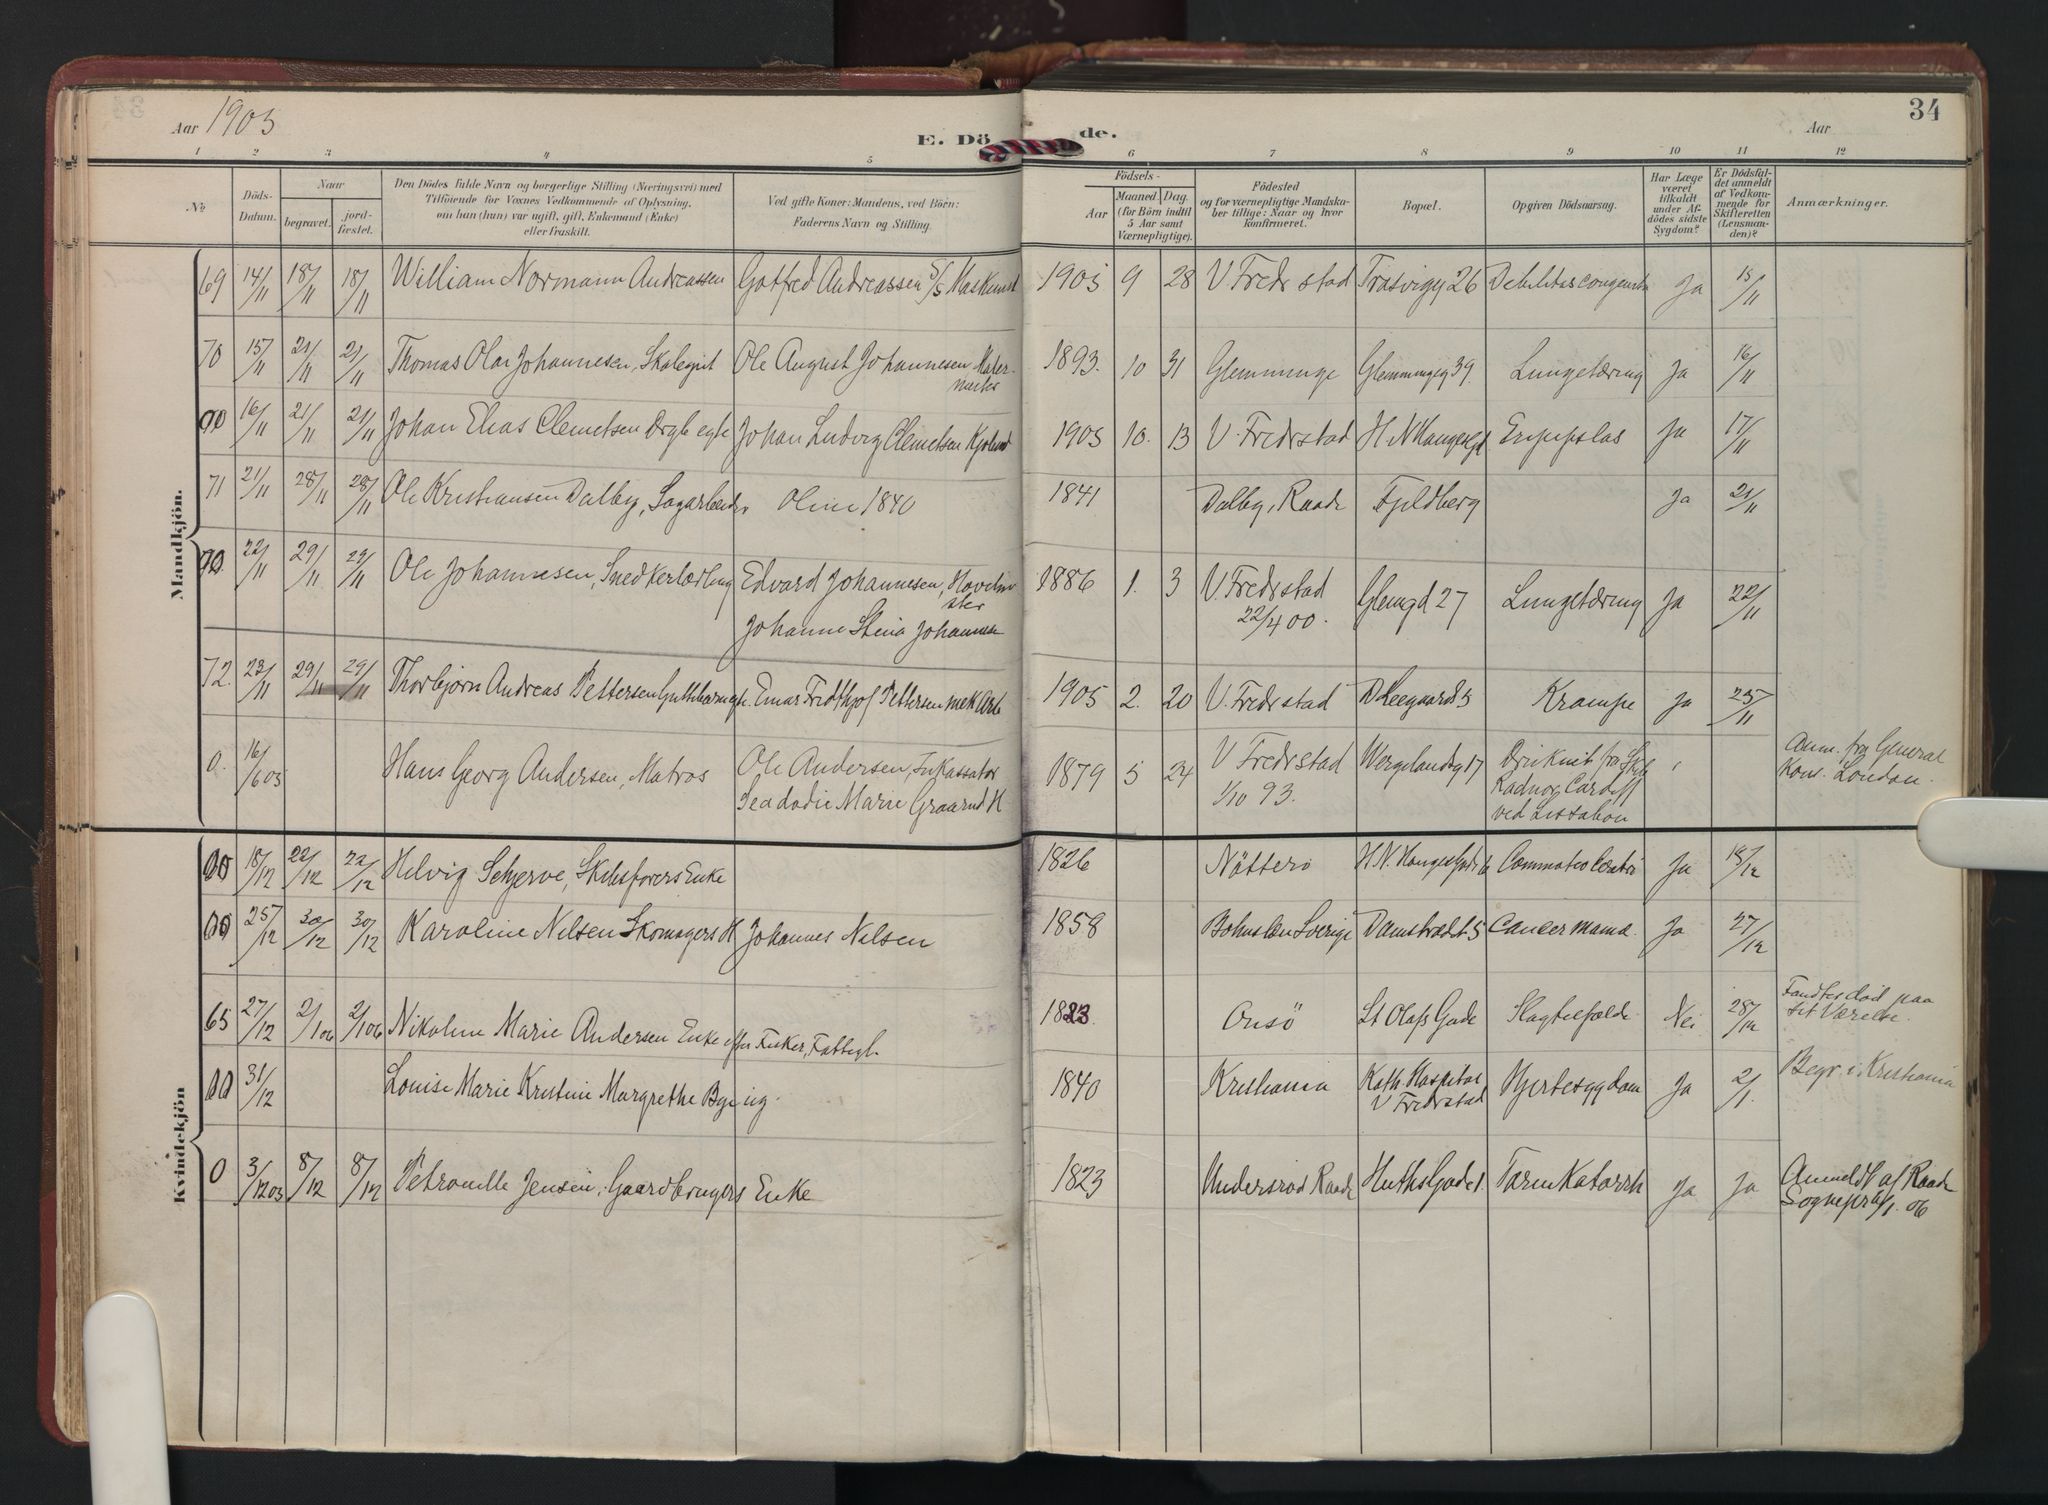 Aar 1905
E. Dö de.
Aar
34
1 2 3 4 5 6 7 8 9 10 11 12
No
Döds-Datum.
Naar
begravet.
jord-fæstet.
Den Dödes fulde Navn og borgerlige Stilling (Næringsvei) med
Tilföiende for Voxnes Vedkommende af Oplysning,
om han (hun) var ugift, gift, Enkemand (Enke)
eller fraskilt.
Ved gifte Koner: Mandens, ved Börn:
Faderens Navn og Stilling.
Födsels-
Aar
Maaned.
Dag.
(for Börn indtil
5 Aar samt
Værnepligtige).
Födested
og for værnepligtige Mandska-
ber tillige: Naar og hvor
Konfirmeret.
Bopæl.
Opgiven Dödsaarsag.
Har Læge
været
tilkaldt
under Af-
dödes sidste
Sygdom?
Er Dödsfal-
det anmeldt
af Vedkom-
mende for
Skifteretten
(Lensman-
den)?
Anmærkninger.
Mandkjön.
69 14/11 18/11 18/11 William Normann Andreassen Gotfred Andreassen 1905 9 28 V. Fredrstad Trosvigg 26 Debilitas congenita Ja 15/11
70 15/11 21/11 21/11 Thomas Olaf Johannesen, Skolegut Ole August Johannesen Maler-
mester 1893. 10 31 Glemminge Glemmingeg 39. Lungetæring Ja 16/11
16/11 21/11 21/11 Johan Elias Clemetsen Johan Ludvig Clemetsen 1905 10. 13 V Fredrstad Ja 17/11
71 21/11 28/11 28/11 Ole Kristiansen Dalby, Sagarbeider Oline 1840 1841 Dalby, Raade Fjeldberg Ja 21/11
22/11 29/11 29/11 Ole Johannesen, Snedkerlærling Edvard Johannesen, Høvelme
ster
Johanne Stina Johannesen 1886 1. 3 V. Fredrstad
22/4 00. Glemgd 27 Lungetæring Ja 22/11
72. 23/11 29/11 29/11 Thorbjørn Andreas Pettersen Einar Fridthjof Pettersen mek Arb 1905 2. 20 V. Fredrstad Krampe Ja 25/11
0. 16/6 05 Hans Georg Andersen, Matros Ole Andersen, Inkassator
Marie 1879 5 24 V Fredrstad
1/10 93. Wergelandsg 17 Druknet fra Skib
Radnor Cardiff
ved Lissabon Anm. fra General
Kons. London.
Kvindekjön
18/12 22/12 22/12 Helvig Schjerve, Skibsførers Enke 1826 Nötterö H.N. Hauges Gade 6 Commotio Cerebri Ja 18/12
25/12 30/12 30/12 Karoline Nilsen Skomagers H Johannes Nilsen 1858 Bohuslen Sverige Damstrædet 5 Cancer mama. Ja 27/12
65 27/12 2/1 06 2/1 06 Nikoline Marie Andersen Enke efter Fisker, Fattigl. 1823. Onsö St Olafs Gade Slagtilfælde Nei 28/12 Fandtes död paa
sit Værelse.
31/12 Louise Marie Kristine Margrethe 1840 Kristiania Kath. Hospital
V Fredrstad Hjertesygdom Ja 2/1. Begr. i Kristiania
0 3/12 05 8/12 8/12 Petronille Jensen, Gaardbrugers Enke 1823 Raade Huths Gade 1. Tarmkatarrh Ja Ja Anmeldt af Raade
Sognepr. 06